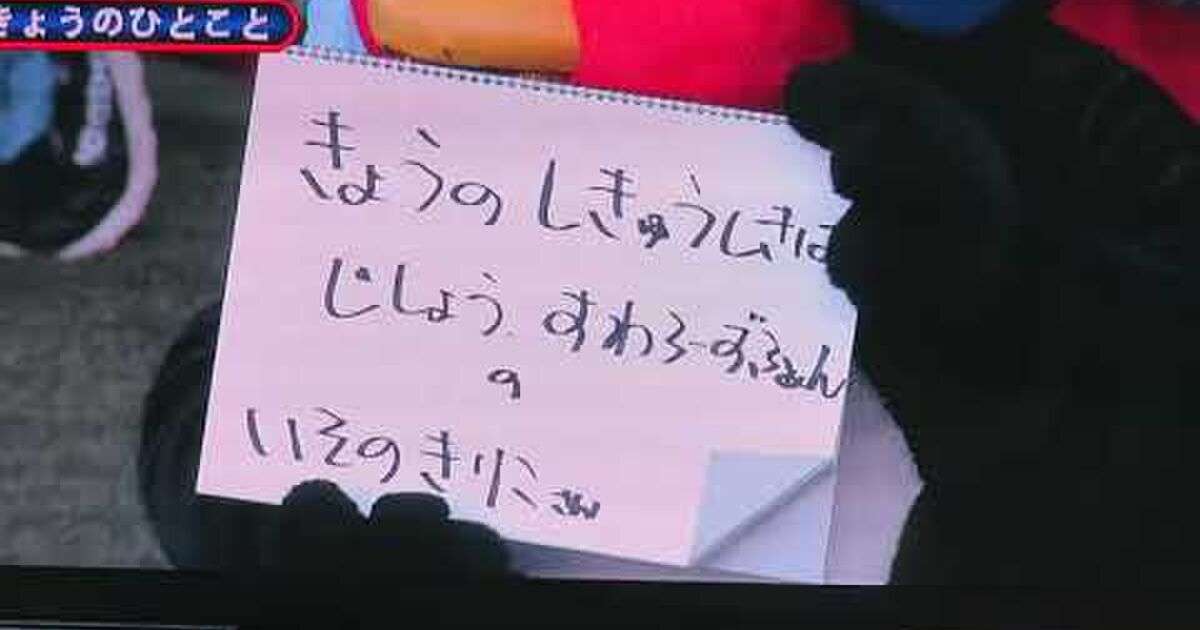 きょうのひとこと
きょうの しきゅうしきは
じしょう、すわろーずふぁん
の
いその きりこさん